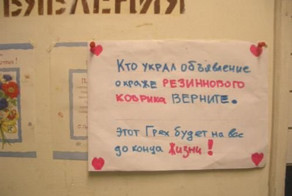 ВЛЕНИЯ
Кто украл объявление
о краже РЕЗИННОВОГО
КОВРИКА ВЕРНИТЕ.
этот Грех будет на вас
до конца Жизни!